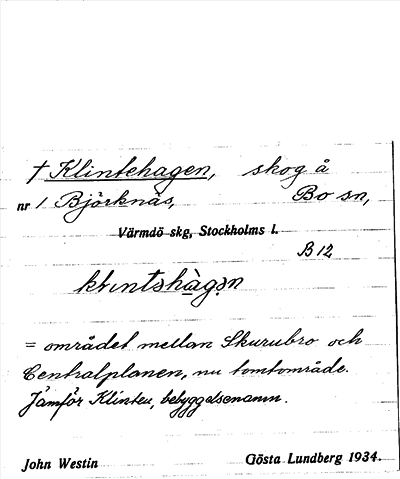 † Klintehagen, skog å
nr 1 Björknäs, Bo sn,
Värmdö skg, Stockholms l.
B 12
klıntshàgən
= området mellan Skurubro och
Centralplanen, nu tomtområde.
Jämför Klinten, bebyggelsenamn.
John Westin Gösta Lundberg 1934.